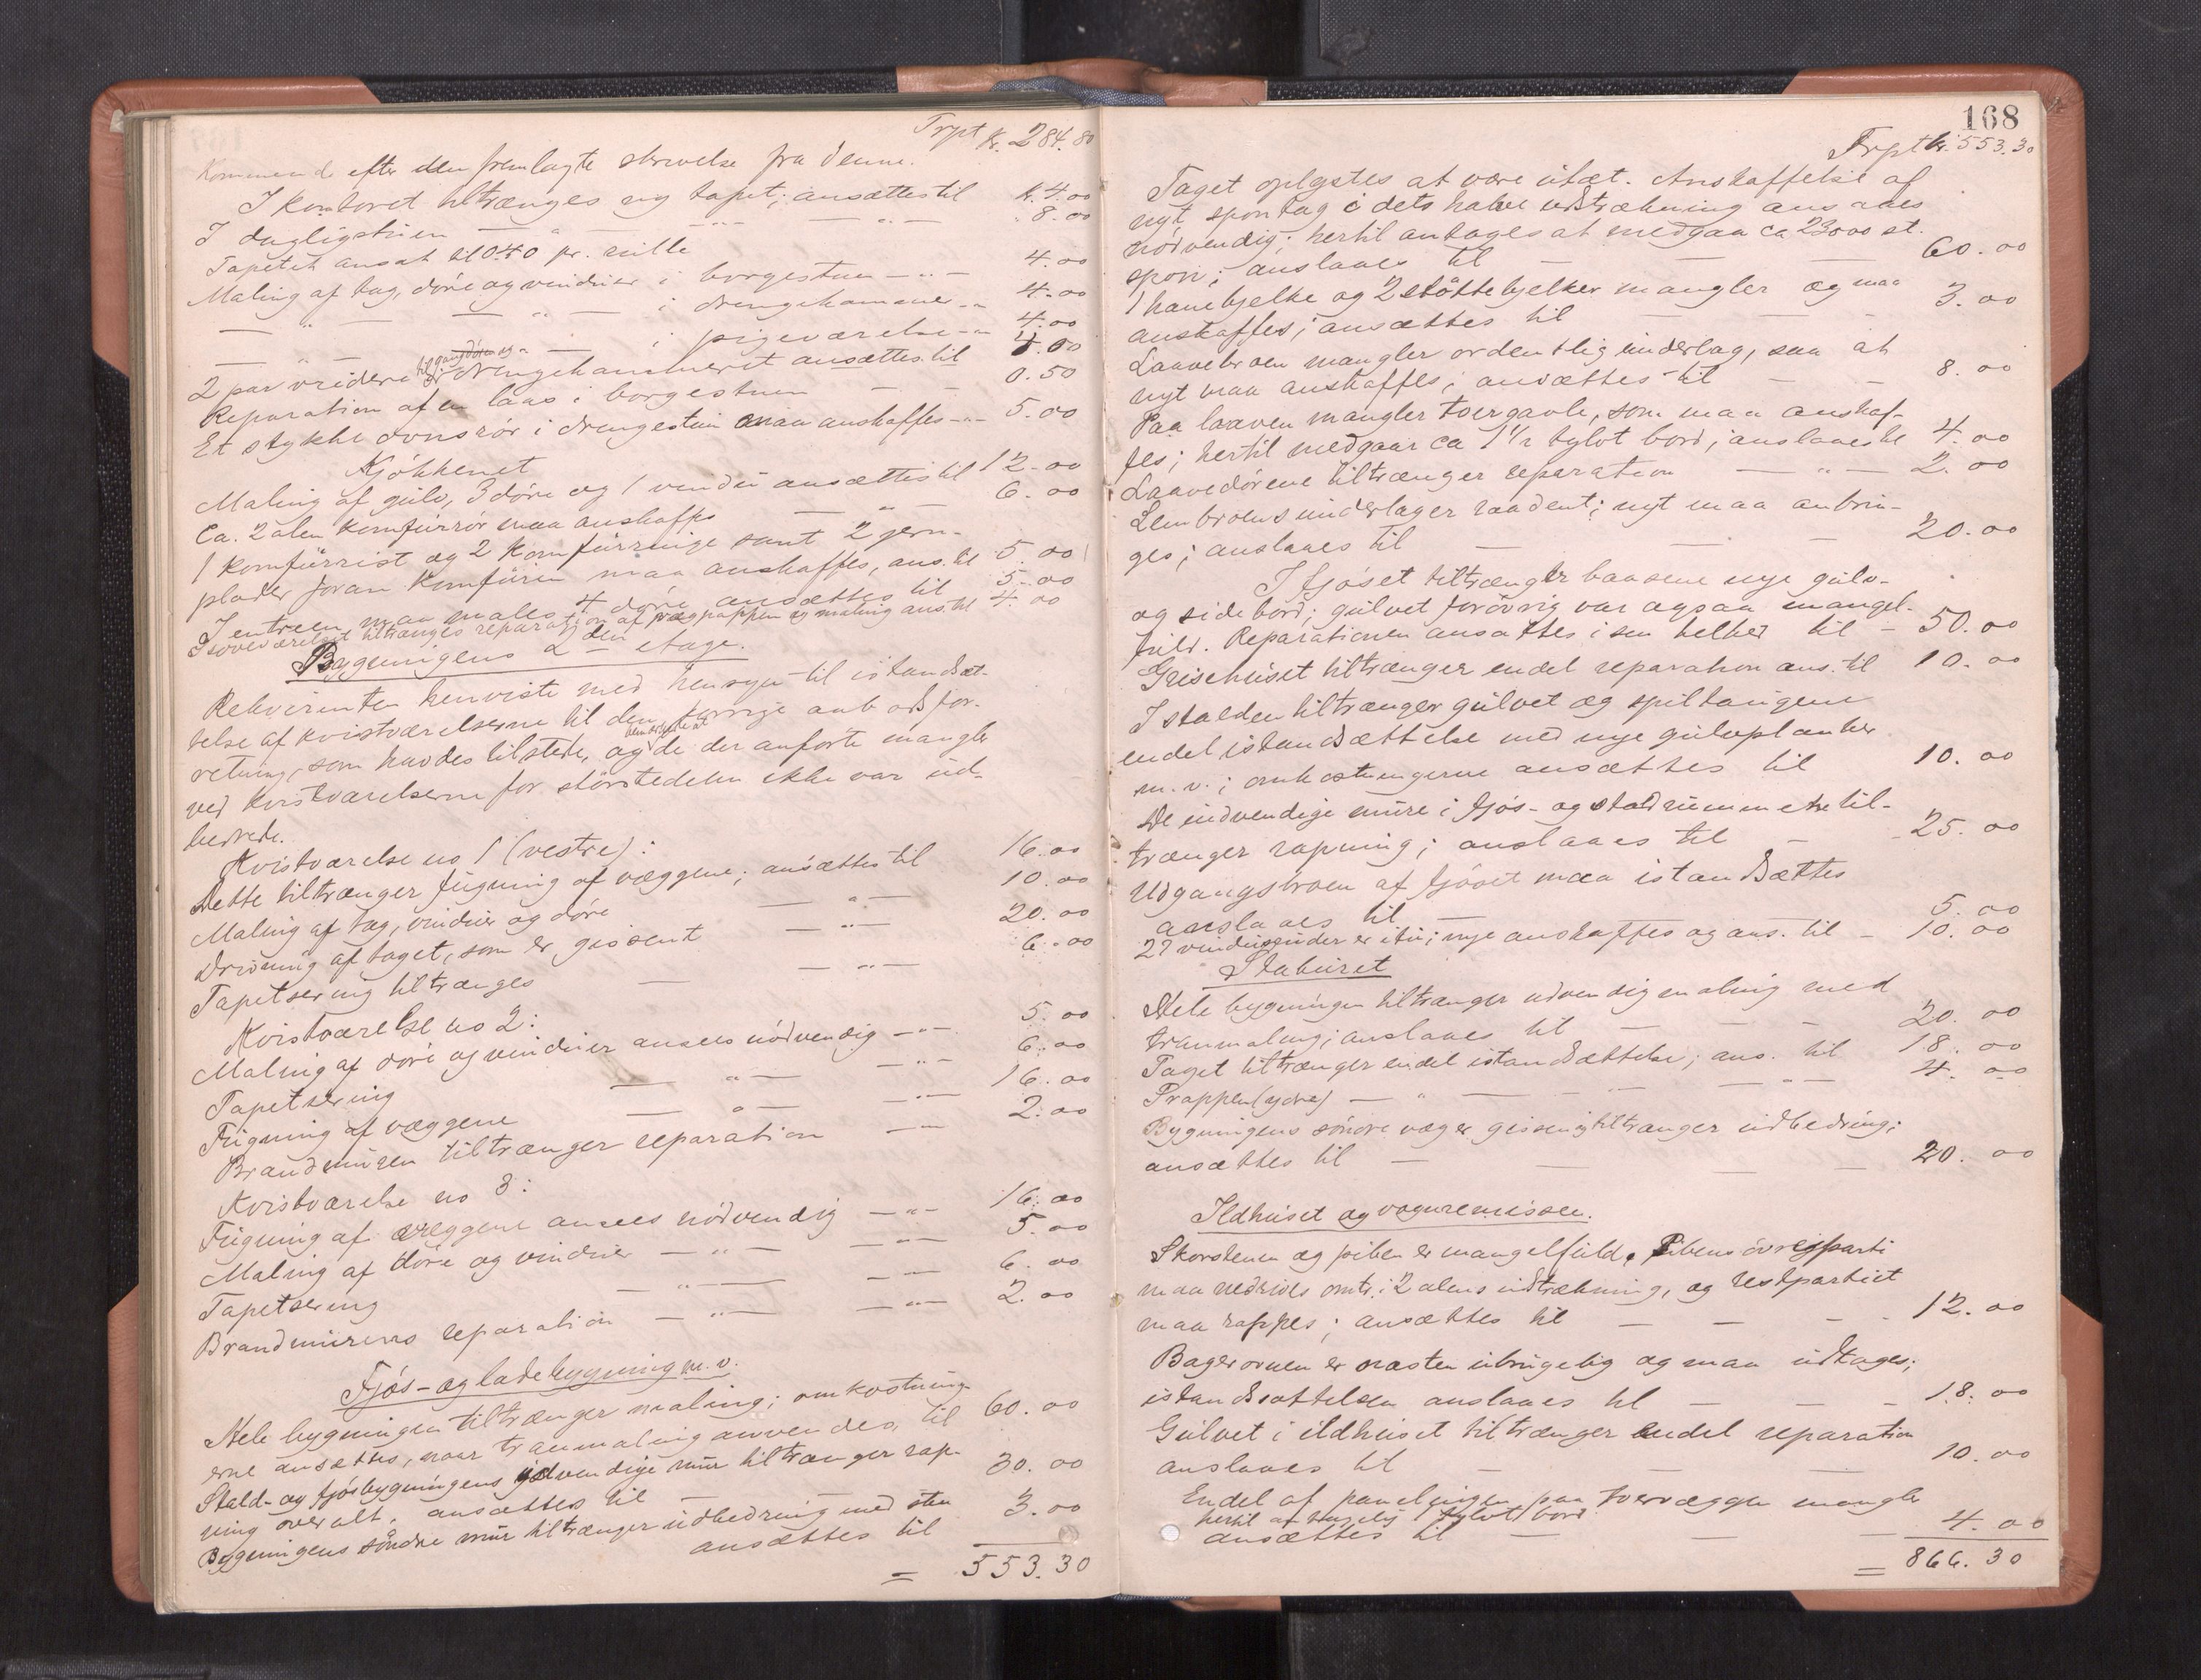 Trpt kr. 284.80
kommende efter den fremlagte skrivelse fra denne.
I kontoret tiltrænges ny tapet; ansættes til kr. 4.00
I dagligstuen — " — — " — — " — " 8.00
Tapetet ansat til 0.40 pr. rulle
Maling af tag, døre og vinduer i borgestuen — " — 4.00
— " — — " — i drengekammer — " 4.00
— " — — " — i pigeværelse — " 4.00
2 par vridere til gangdøren og til drengekammeret ansættes til 4.00
Reparation af en laas i borgestuen — — 0.50
Et stykke ovnsrør i drengestuen maa anskaffes — " — 5.00
Kjøkkenet
Maling af gulv, 3 døre og 1 vindu ansættes til 12.00
Ca. 2 alen komfurrør maa anskaffes — " — 6.00
1 komfurrist og 2 komfurringe samt 2 jern-
plader foran komfuren maa anskaffes, ans. til 5.00
I entreen maa males 4 døre ansættes til 5.00
I soveværelset tiltrænges reparation af vægpappen og maling ans. til 4.00
Bygningens 2den etage.
Rekvirenten henviste med hensyn til istandsæt-
telse af kvistværelserne til den forrige aabodsfor-
retning, som havdes tilstede, og bemærkede at de der anførte mangler
ved kvistværelserne for størstedelen ikke var ud-
bedrede.
Kvistværelse no 1 (vestre):
Dette tiltrænger fugning af væggene; ansættes til 16.00
Maling af tag, vinduer og døre — " — 10.00
Drivning af taget, som er gissent — " — 20.00
Tapetsering tiltrænges — — " — 6.00
Kvistværelse no 2:
Maling af døre og vinduer ansees nødvendig — " — 5.00
Tapetsering — " — — " — 6.00
Fugning af væggene — " — — " — 16.00
Brandmuren tiltrænger reparation — " — 2.00
Kvistværelse no 3:
Fugning af væggene ansees nødvendig — " — 16.00
Maling af døre og vinduer — " — — " — 5.00
Tapetsering — " — — " — 6.00
Brandmurens reparation — " — — " — 2.00
Fjøs- og ladebygning m.v.
Hele bygningen tiltrænger maling; omkostning-
erne ansættes, naar tranmaling anvendes, til 60.00
Stald- og fjøsbygningens udvendige mur tiltrænger rap-
ning overalt, ansættes til — 30.00
Bygningens søndre mur tiltrænger udbedring med sten
ansættes til 3.00
= 553.30
168
Trpt kr. 553.30
Taget oplystes at være utæt. Anskaffelse af
nyt spontag i dets halve udstrækning ansaaes
nødvendig; hertil antages at medgaa ca 23000 st.
spon; anslaaes til — — — 60.00
1 hanebjelke og 2 støttebjelker mangler og maa
anskaffes; ansættes til — — — 3.00
Laavebroen mangler ordentlig underlag, saa at
nyt maa anskaffes; ansættes til — — 8.00
Paa laaven mangler tvergavle, som maa anskaf-
fes; hertil medgaar ca 1 1/2 tylvt bord; anslaaes til 4.00
Laavedørene tiltrænger reparation — " — 2.00
Lembroens underlag er raadent; nyt maa anbrin-
ges; anslaaes til — — — 20.00
I fjøset tiltrænger baasene nye gulv-
og sidebord; gulvet forøvrig var ogsaa mangel-
fuld. Reparationen ansættes i sin helhed til — 50.00
Grisehuset tiltrænger endel reparation ans. til 10.00
I stalden tiltrænger gulvet og spiltaugene
endel istandsættelse med nye gulvplanker
m.v.; omkostningerne ansættes til 10.00
De indvendige mure i fjøs- og staldrummene til-
trænger rapning; anslaaes til — 25.00
Udgangsbroen af fjøset maa istandsættes
anslaaes til — — — 5.00
27 vindusruder er itu; nye anskaffes og ans. til — 10.00
Staburet
Hele bygningen tiltrænger udvendig maling med
tranmaling; anslaaes til — — — 20.00
Taget tiltrænger endel istandsættelse; ans. til 18.00
Trappen (ydre) — " — — — " — 4.00
Bygningens søndre væg er gissen og tiltrænger udbedring;
ansættes til — — — — 20.00
Ildhuset og vognremissen.
Skorstenen og piben er mangelfuld. Pibens øvre parti
maa nedrives omtr. i 2 alens udstrækning, og restpartiet
maa rappes; ansættes til — — — 12.00
Bagerovnen er næsten ubrugelig og maa udtages;
istandsættelsen anslaaes til — — — 18.00
Gulvet i ildhuset tiltrænger endel reparation
anslaaes til — — — 10.00
Endel af panelingen paa tvervæggen mangler
hertil 1 tylvt bord
ansættes til — — — 4.00
= 866.30